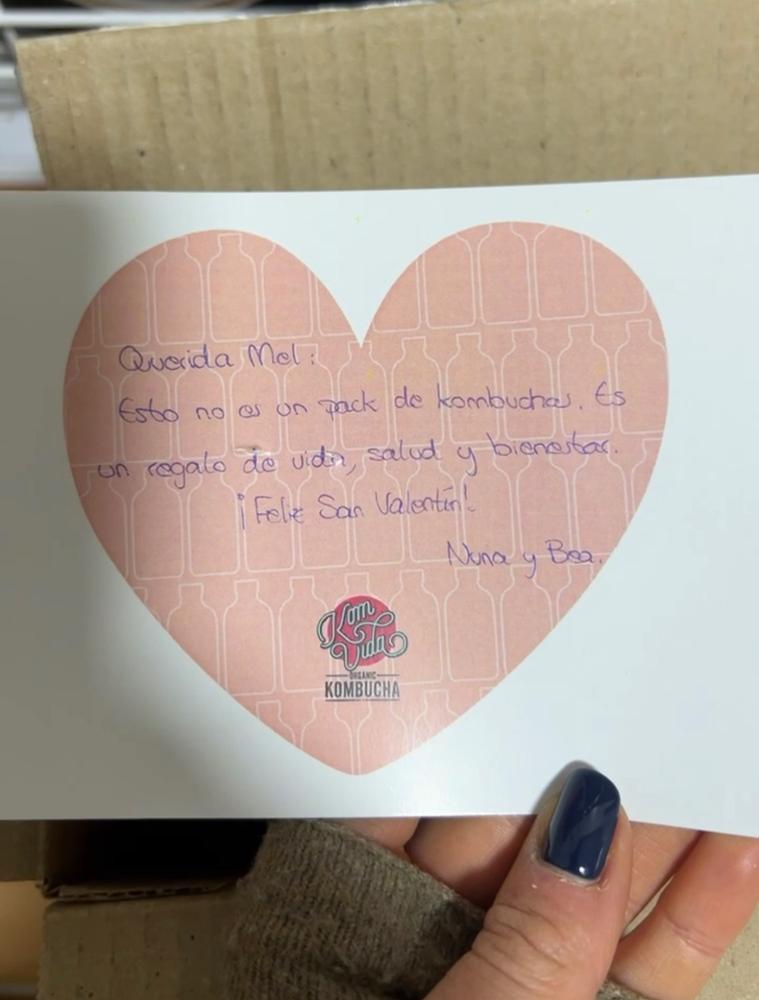 Querida Mel:
Esto no es un pack de kombuchas. Es
un regalo de vida, salud y bienestar.
¡Feliz San Valentín!
Nuria y Bea.
Kom
Vida
ORGANIC
KOMBUCHA